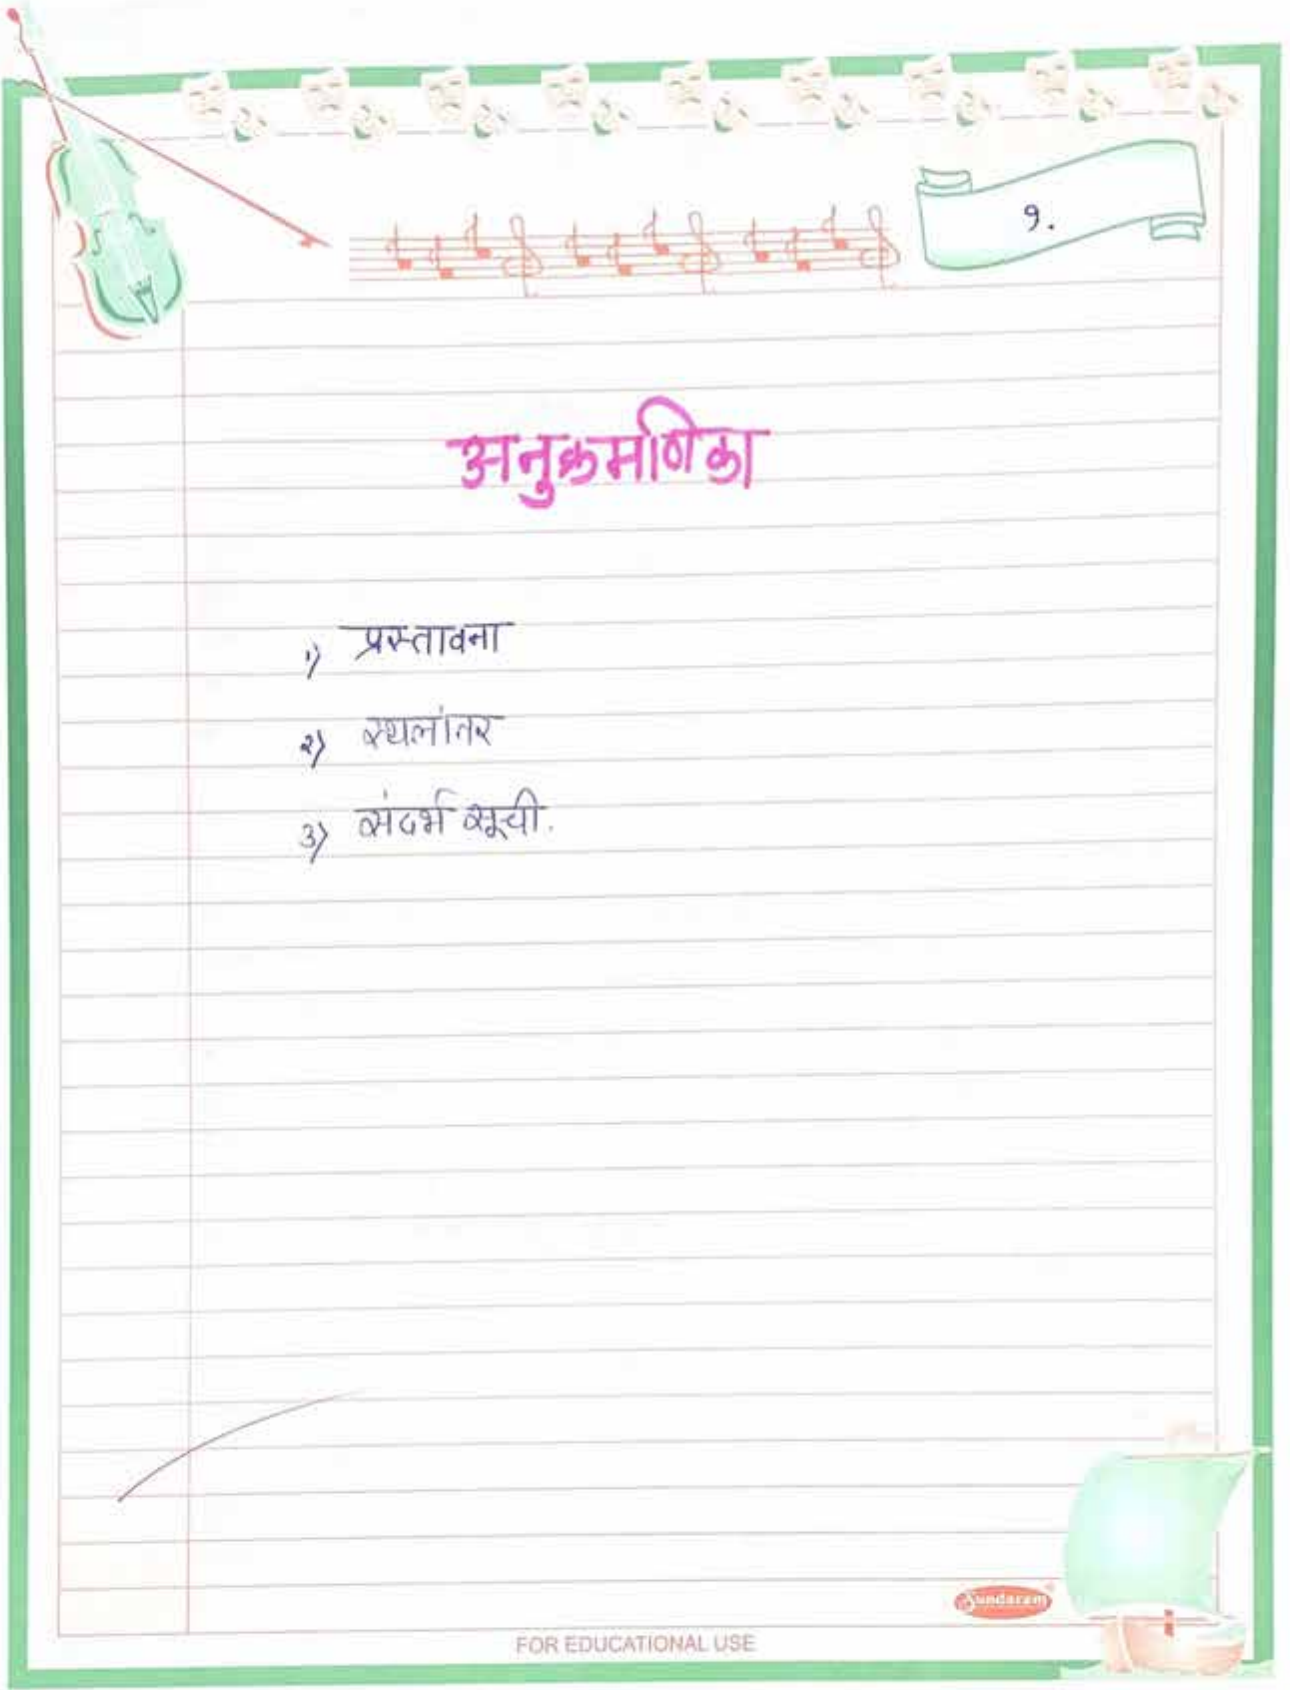 १.
अनुक्रमणिका
१) प्रस्तावना
२) स्थलांतर
३) संदर्भ सूची.
Sundaram
FOR EDUCATIONAL USE